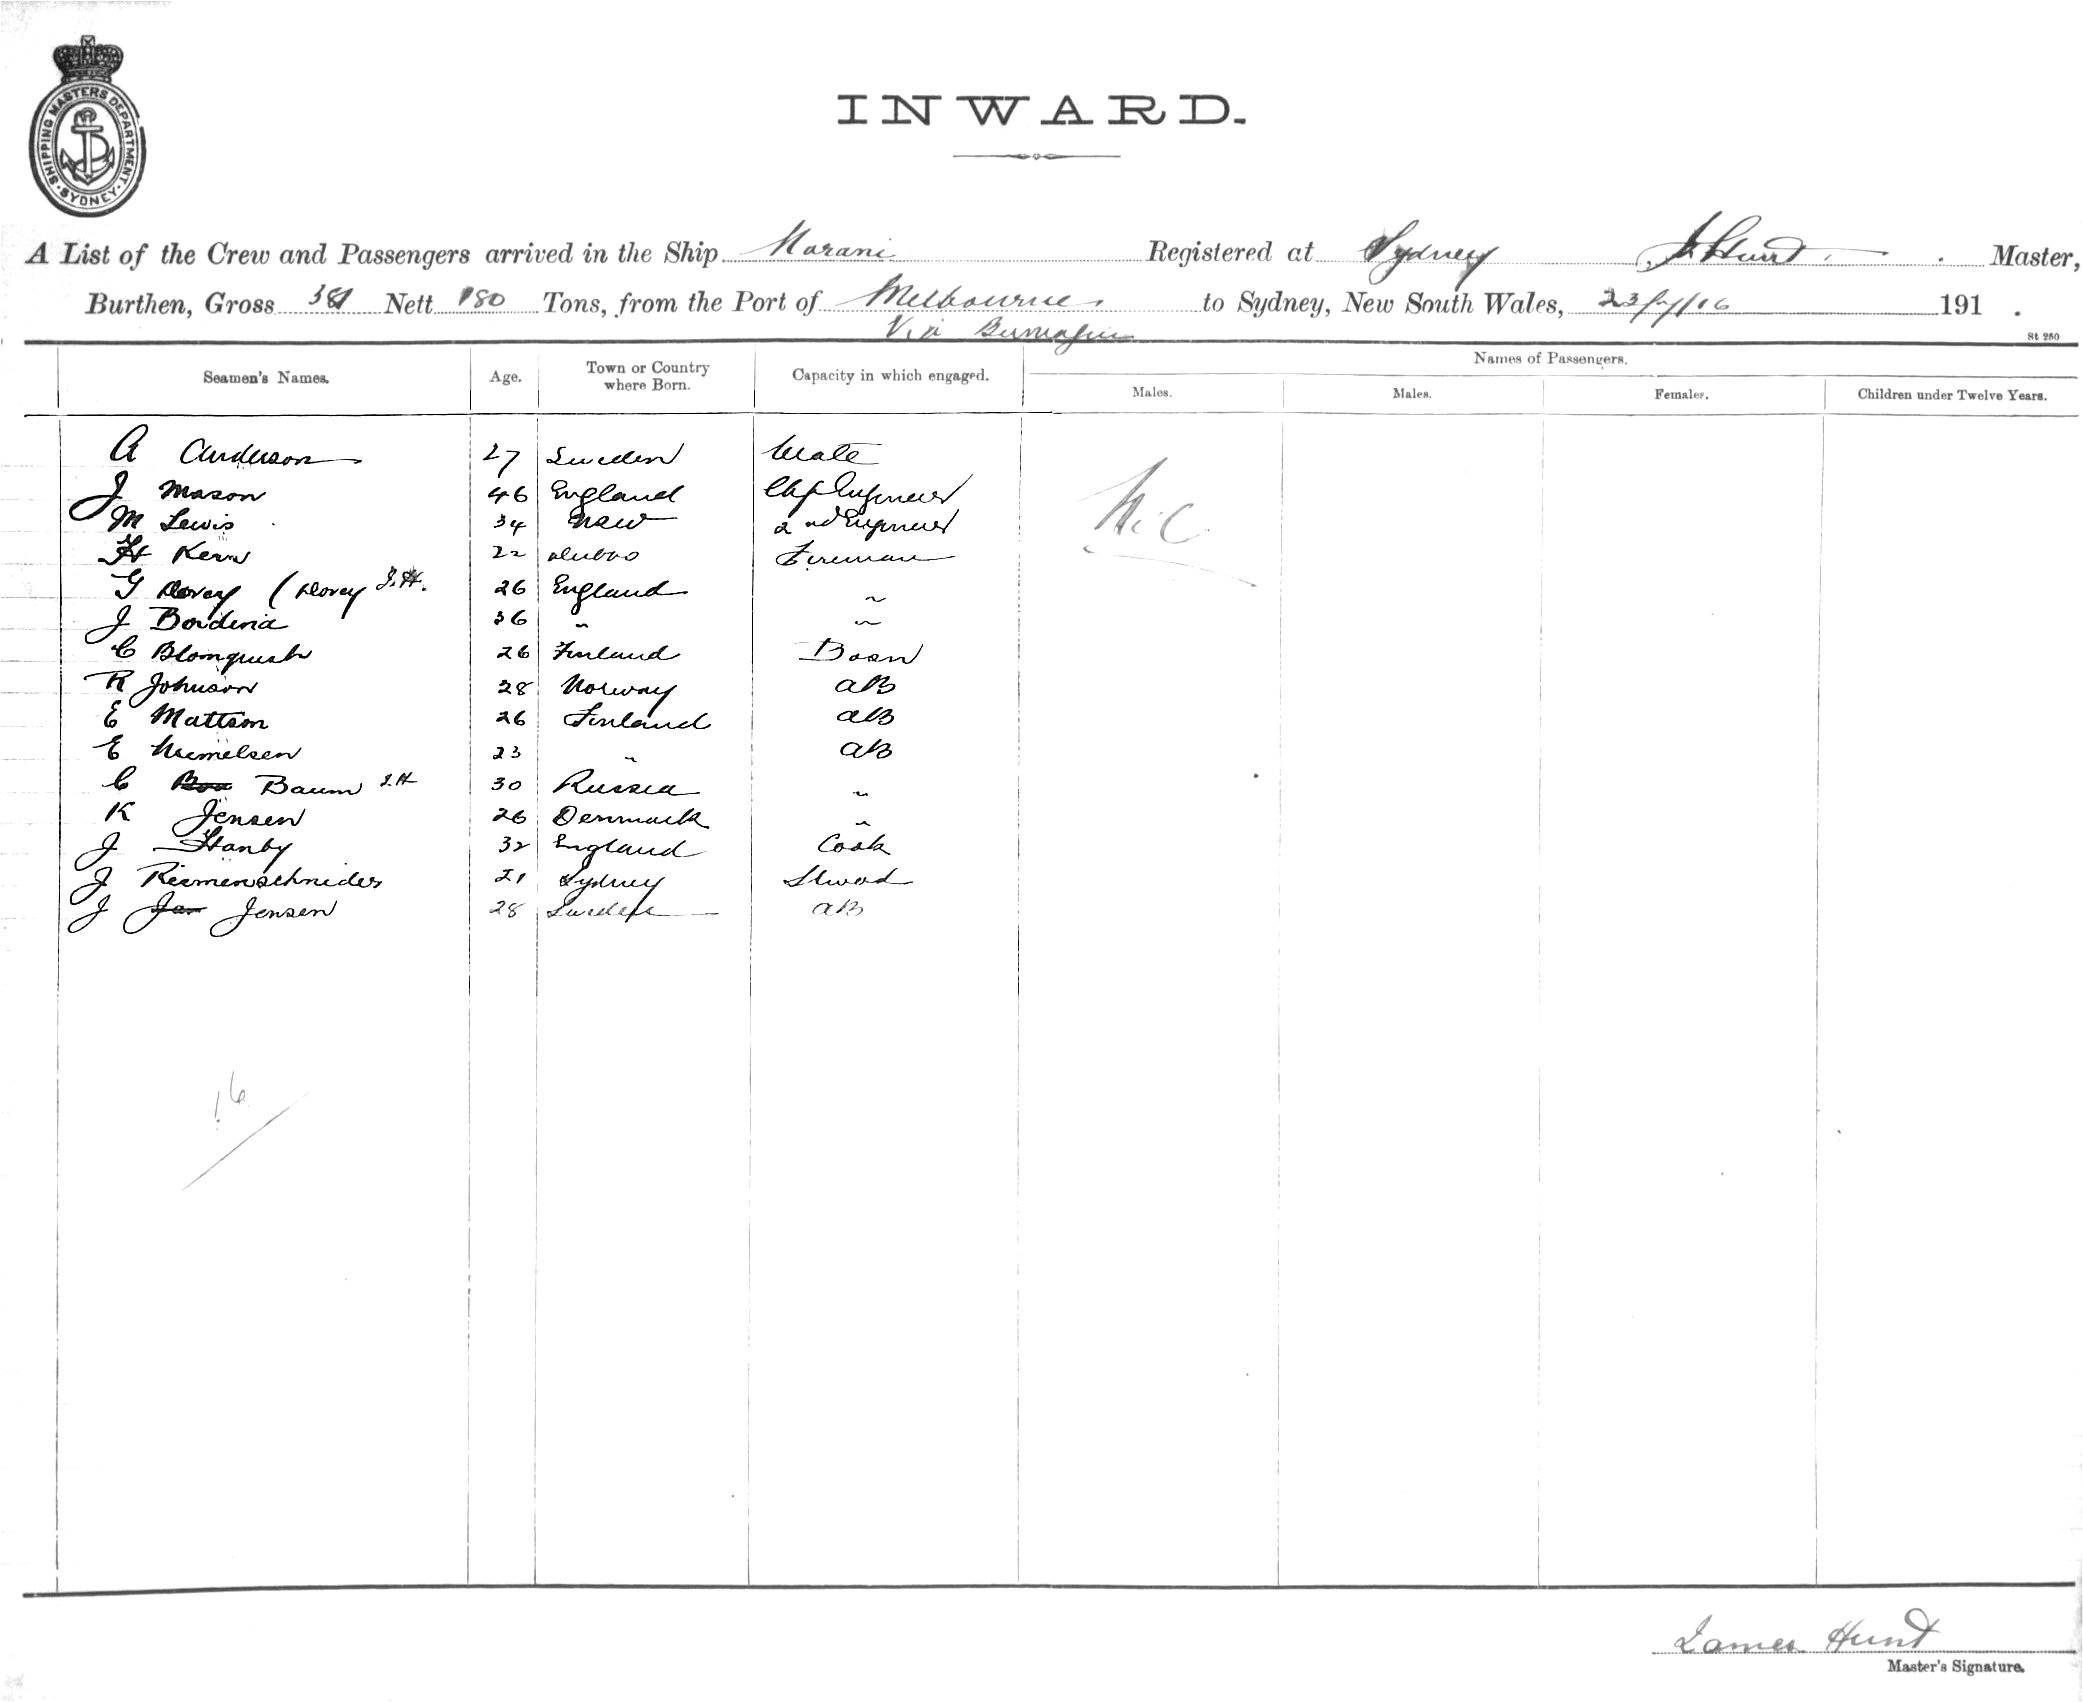 SHIPPING MASTERS DEPARTMENT · SYDNEY ·
INWARD.
A List of the Crew and Passengers arrived in the Ship Narani Registered at Sydney J Hunt Master,
Burthen, Gross 381 Nett 180 Tons, from the Port of Melbourne to Sydney, New South Wales, 23/7/16 191 .
Via Bermagui
St 250
Seamen's Names. Age. Town or Country where Born. Capacity in which engaged. Names of Passengers.
Males. Males. Females. Children under Twelve Years.
A Anderson 27 Sweden Mate
J Mason 46 England Chf Engineer
M Lewis 34 NSW 2nd Engineer
H Kern 22 Fireman
G Dorey (Dorey J.H. 26 England "
J Borderia 36 " "
C Blomquist 26 Finland Bosn
R Johnson 28 Norway AB
E Mattson 26 Finland AB
E Niemelsen 23 " AB
C Baum J.H 30 Russia "
K Jensen 26 Denmark "
J Hanby 32 England Cook
J Riemenschnider 21 Sydney Stwod
J Jensen 28 Sweden AB
16
James Hunt
Master's Signature.